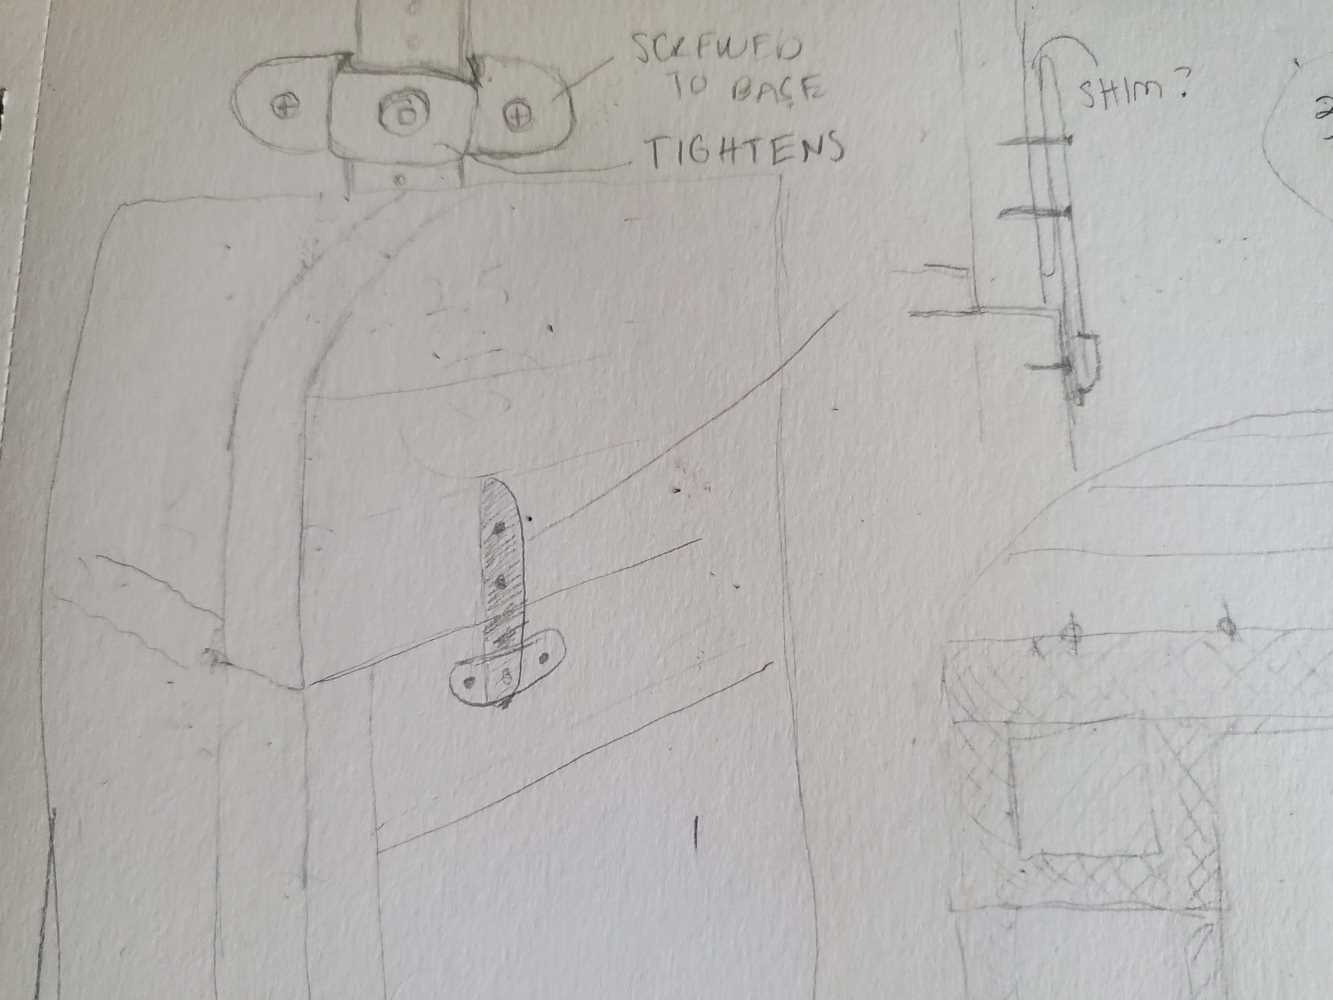 SCREWED
TO BASE
TIGHTENS
SHIM?
25